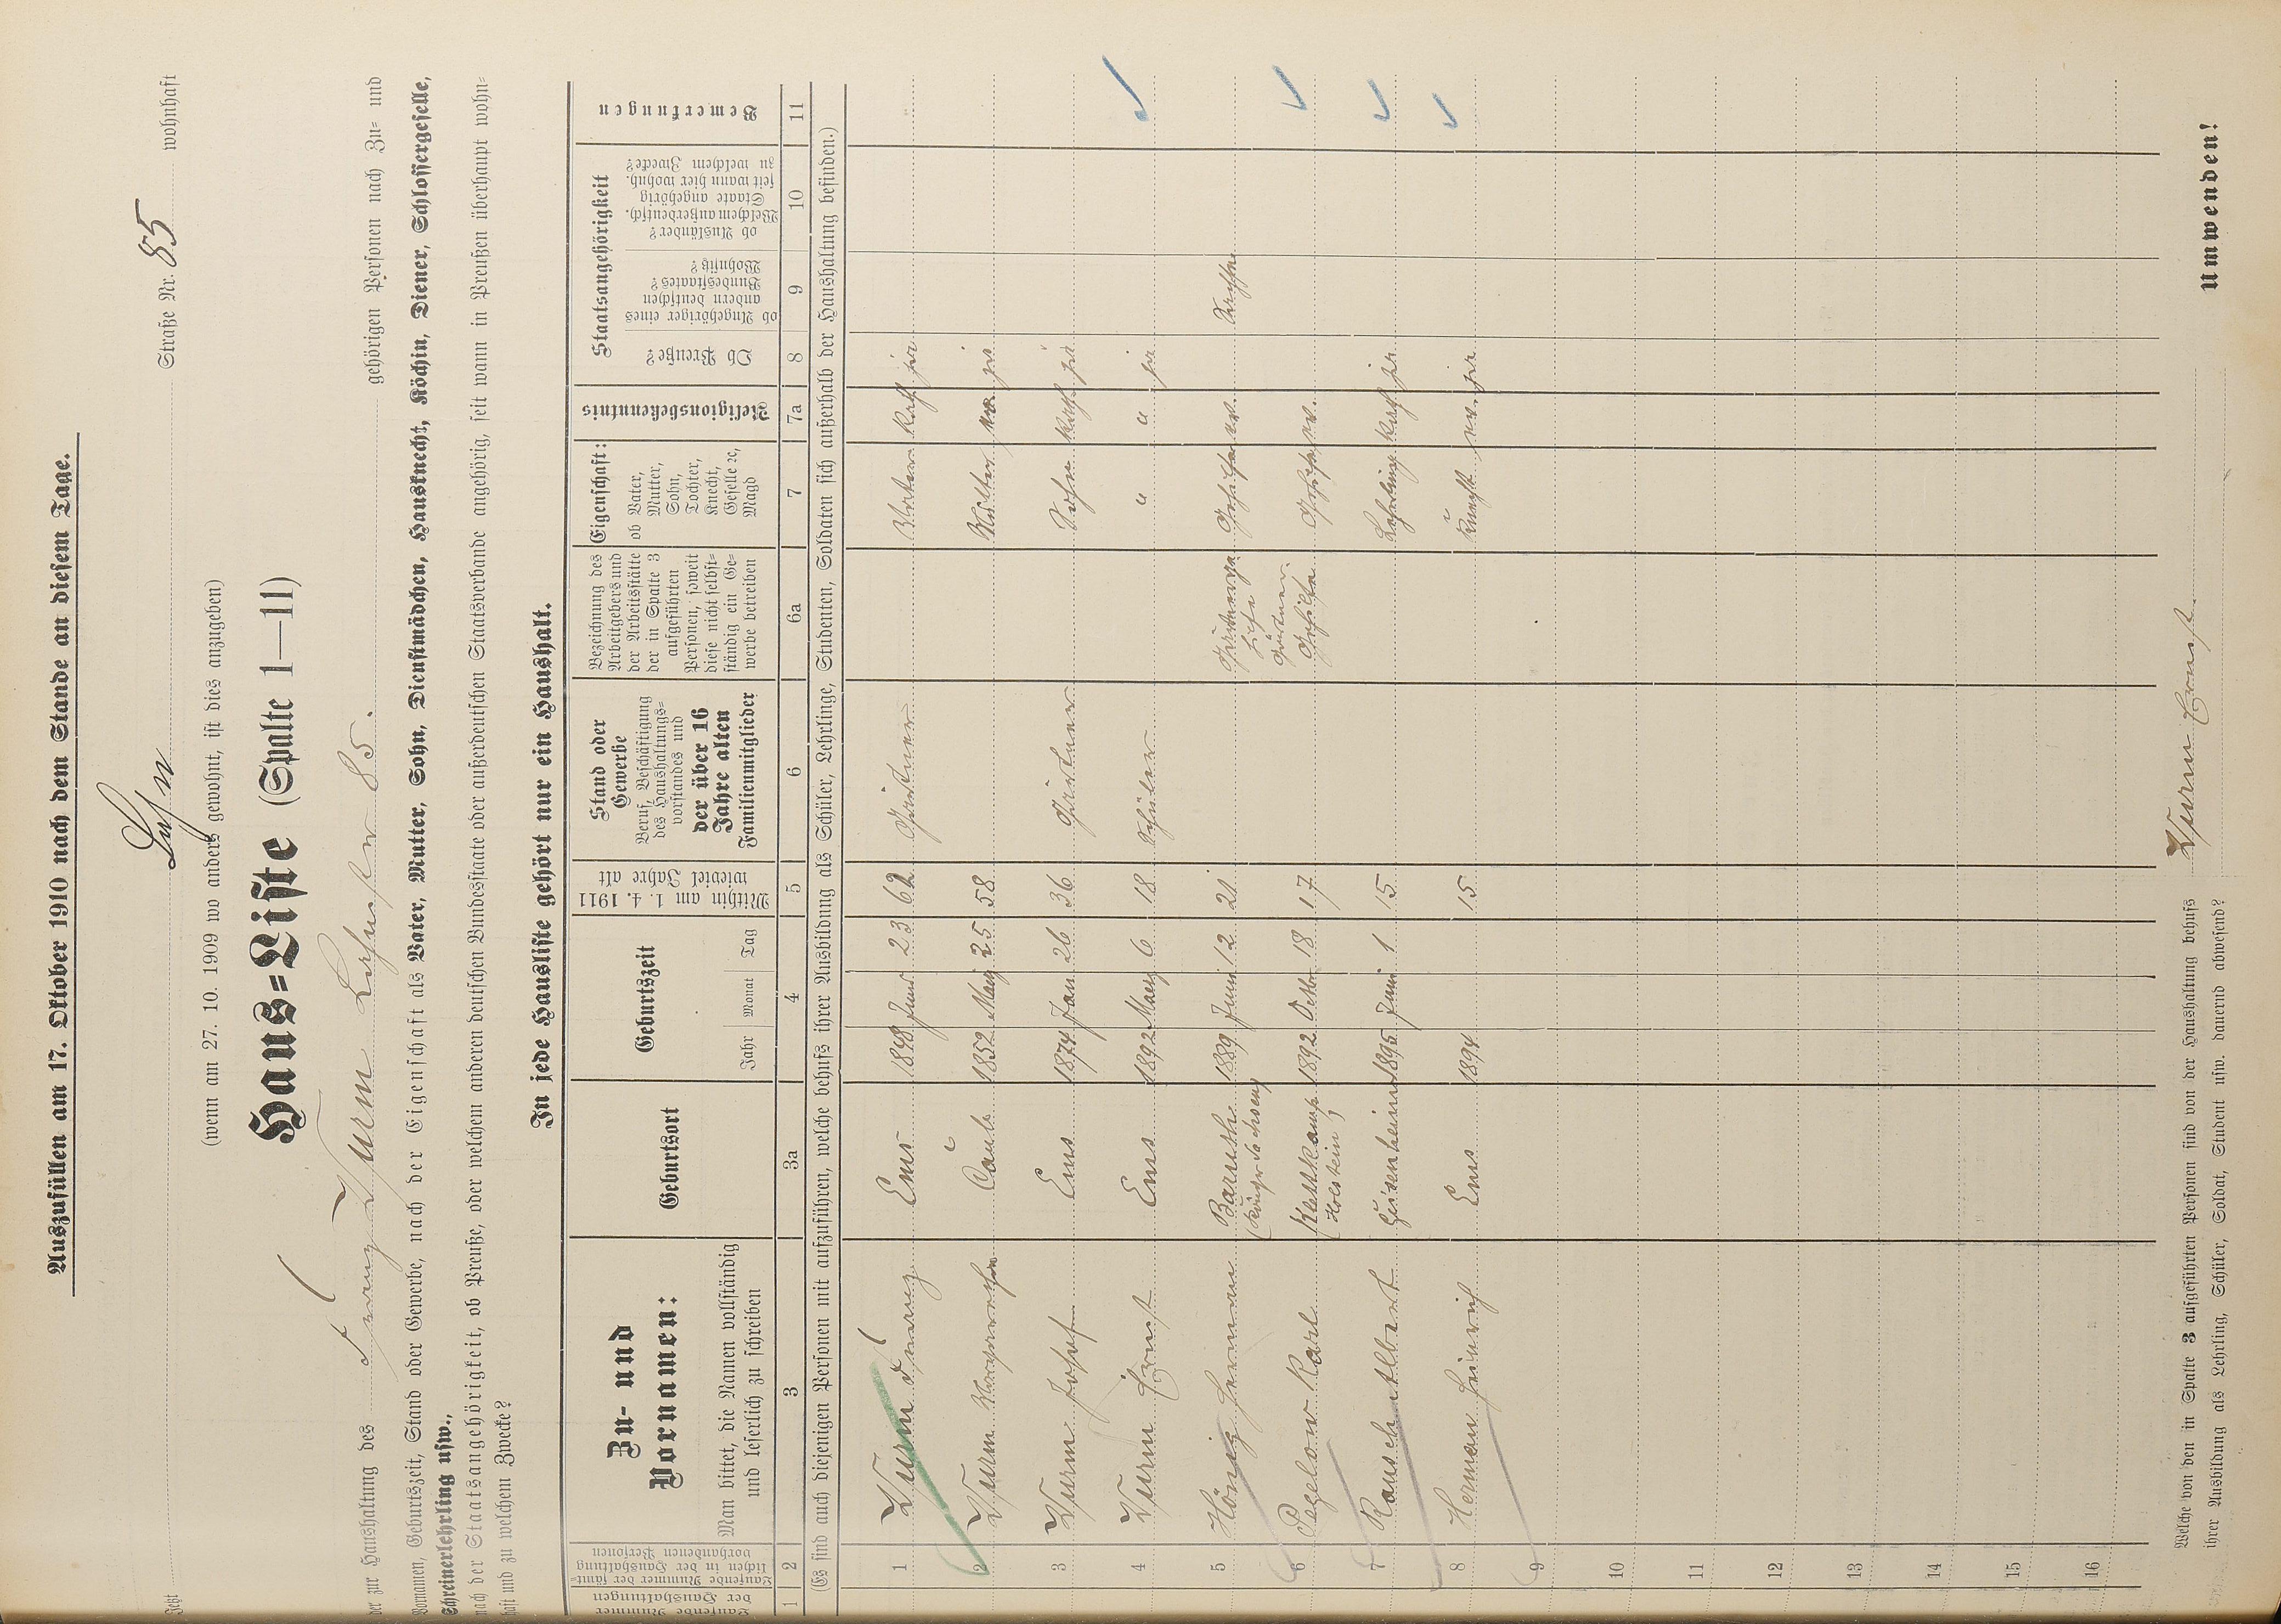 Auszufüllen am 17. Oktober 1910 nach dem Stande an diesem Tage.
Jetzt Lahn Straße Nr. 85 wohnhaft
(wenn am 27. 10. 1909 wo anders gewohnt, ist dies anzugeben)
Haus=Liste (Spalte 1—11)
der zur Haushaltung des Franz Wurm Lahnstr 85. gehörigen Personen nach Zu= und
Vornamen, Geburtszeit, Stand oder Gewerbe, nach der Eigenschaft als Vater, Mutter, Sohn, Dienstmädchen, Hausknecht, Köchin, Diener, Schlossergeselle,
Schreinerlehrling usw.,
nach der Staatsangehörigkeit, ob Preuße, oder welchem anderen deutschen Bundesstaate oder außerdeutschen Staatsverbande angehörig, seit wann in Preußen überhaupt wohn=
haft und zu welchem Zwecke?
In jede Hausliste gehört nur ein Haushalt.
Laufende Nummer der Haushaltungen
Laufende Nummer der sämt=lichen in der Haushaltung vorhandenen Personen
Zu- und Vornamen:
Man bittet, die Namen vollständig und leserlich zu schreiben
Geburtsort
Geburtszeit
Jahr Monat Tag
Mithin am 1. 4. 1911 wieviel Jahre alt
Stand oder Gewerbe
Beruf, Beschäftigung des Haushaltungs=vorstandes und der über 16 Jahre alten Familienmitglieder
Bezeichnung des Arbeitgebers und der Arbeitsstätte der in Spalte 3 aufgeführten Personen, soweit diese nicht selbst=ständig ein Ge=werbe betreiben
Eigenschaft:
ob Vater, Mutter, Sohn, Tochter, Knecht, Geselle ec, Magd
Religionsbekenntnis
Staatsangehörigkeit
Ob Preuße?
ob Angehöriger eines andern deutschen Bundesstaates? Wohnsitz?
ob Ausländer? Welchem außerdeutsch. Staate angehörig seit wann hier wohnh. zu welchem Zwecke?
Bemerkungen
1 2 3 3a 4 5 6 6a 7 7a 8 9 10 11
(Es sind auch diejenigen Personen mit aufzuführen, welche behufs ihrer Ausbildung als Schüler, Lehrlinge, Studenten, Soldaten sich außerhalb der Haushaltung befinden.)
1 Wurm Franz Ems 1848 Juni 23 62 Gärtner Vater kath ja
2 Wurm Margarethe Caub 1852 May 25 58 Mutter ev. ja
3 Wurm Josef Ems 1874 Jan 26 36 Gärtner Sohn kath ja
4 Wurm Ernst Ems 1892 May 6 18 Schüler " " ja
5 Hönig Herman Baruth 1889 Juni 12 21 Gehilfe ev. Sachsen
6 Pegelow Karl Klettkamp (Holstein) 1892 Oktbr 18 17 Gärtner Gehilfe Gehilfe ev.
7 Rausch Albert Geisenheim 1895 Juni 1 15 Lehrling kath ja
8 Herman Heinrich Ems 1894 15 Knecht ev. ja
9
10
11
12
13
14
15
16
Welche von den in Spalte 3 aufgeführten Personen sind von der Haushaltung behufs
ihrer Ausbildung als Lehrling, Schüler, Soldat, Student usw. dauernd abwesend? Wurm Ernst.
Umwenden!